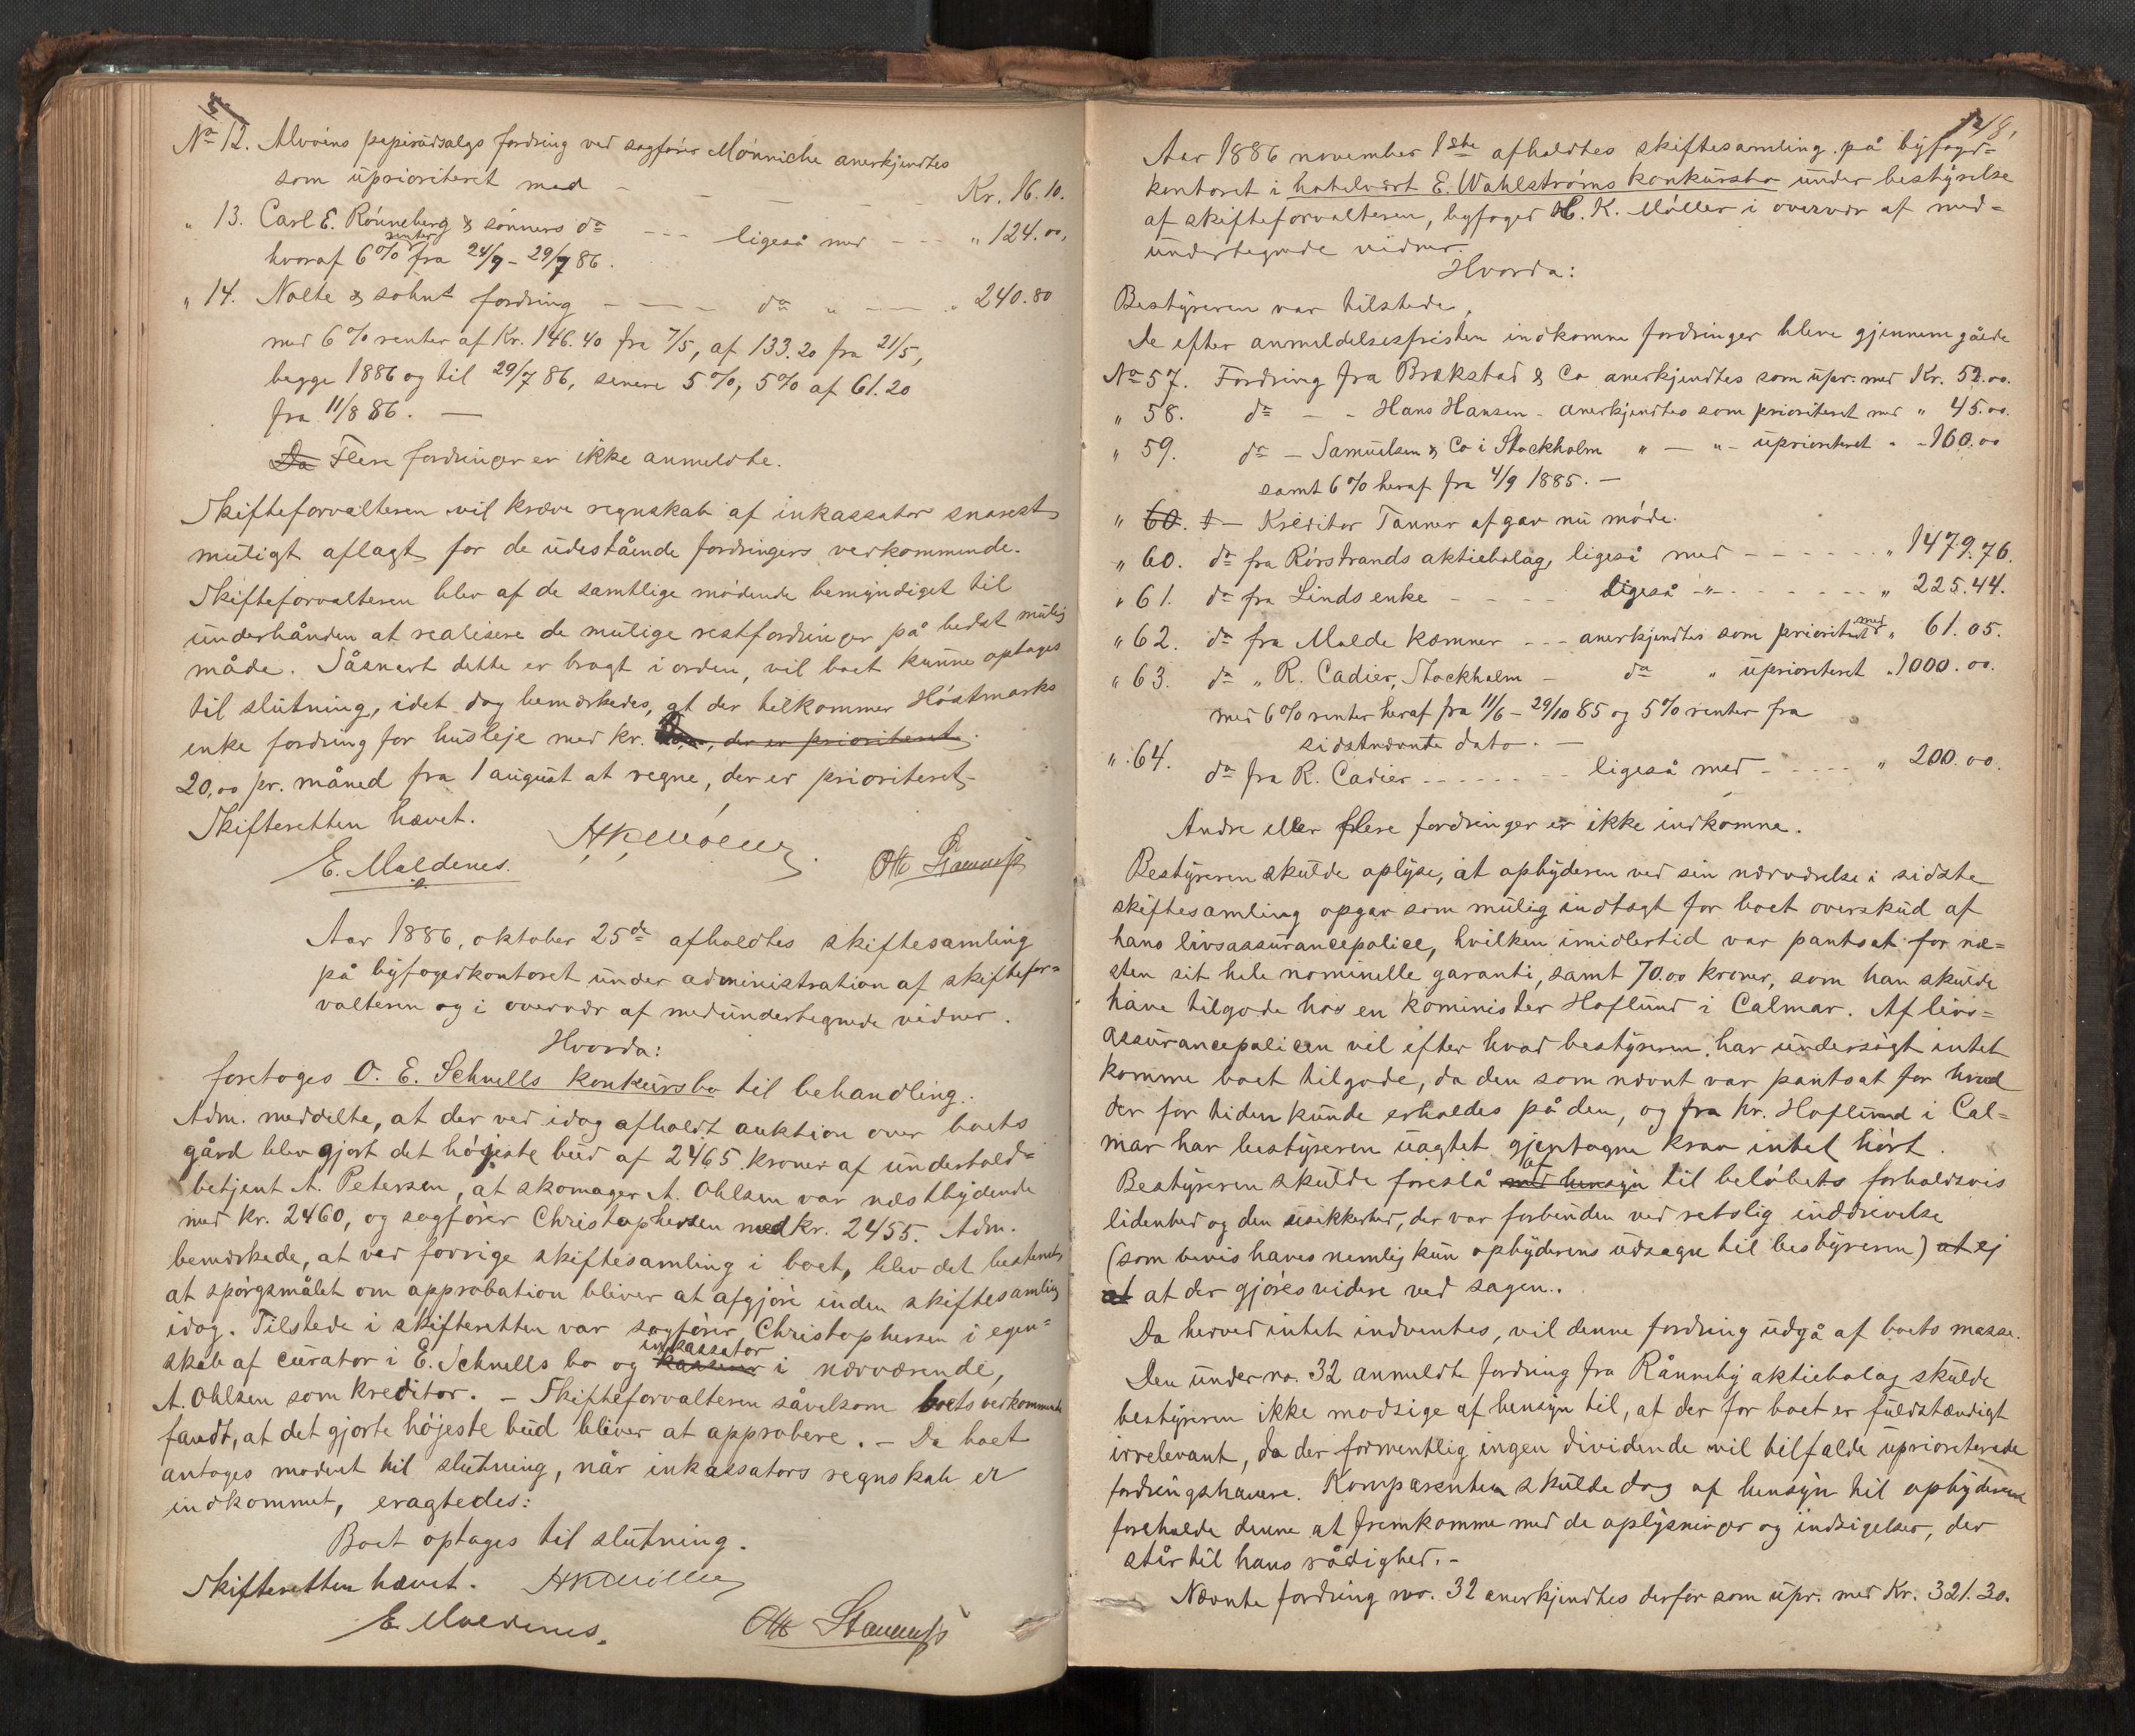 No 12. Alvøens papirudsalgs fordring ved sagfører Mønniche anerkjendtes
som uprioriteret med - - - - - Kr. 16.10.
" 13. Carl E. Rønneberg & sønners do --- ligeså med --- " 124.00,
hvoraf 6% renter fra 24/7 - 29/7 86.
" 14. Nolte & søhns fordring - - - do " - - " 240.80
med 6% renter af Kr. 146.40 fra 7/5, af 133.20 fra 21/5,
begge 1886 og til 29/7 86, senere 5%, 5% af 61.20
fra 11/8 86. -
Da Flere fordringer er ikke anmeldte.
Skifteforvalteren vil kræve regnskab af inkassator snarest
muligt aflagt for de udestående fordringers vedkommende.
Skifteforvalteren blev af de samtlige mødende bemyndiget til
underhånden at realisere de mulige restfordringer på bedst mulig
måde. Såsnart dette er bragt i orden, vil boet kunne optages
til slutning, idet dog bemærkedes, at der tilkommer Høstmarks
enke fordring for husleje med kr. der er prioriteret
20,00 pr. måned fra 1 august at regne, der er prioriteret.
Skifteretten hævet.
HKMøller.
E. Maldenes. Ott
Aar 1886, oktober 25de afholdtes skiftesamling
på byfogedkontoret under administration af skiftefor=
valteren og i overvær af medundertegnede vidner.
Hvorda:
foretoges O. E. Schnells konkursbo til behandling.
Adm. meddelte, at der ved idag afholdt auktion over boets
gård blev gjort det højeste bud af 2465 kroner af undertold=
betjent A. Petersen, at skomager A. Ohlsen var næstbydende
med kr. 2460, og sagfører Christophersen med kr. 2455. Adm.
bemærkede, at ved forrige skiftesamling i boet, blev det bestemt
at spørgsmålet om approbation bliver at afgjøre inden skiftesamling
idag. Tilstede i skifteretten var sagfører Christophersen i egen=
skab af curator i E. Schnells bo og kasserer inkassator i nærværende,
A. Ohlsen som kreditor. - Skifteforvalteren såvelsom boets vedkommende
fandt, at det gjorte højeste bud bliver at approbere. - Da boet
antages modent til slutning, når inkassators regnskab er
indkommet, eragtedes:
Boet optages til slutning.
Skifteretten hævet. HKMøller
E. Maldenes. Ott
148,
Aar 1886 november 1ste afholdtes skiftesamling på byfoged=
kontoret i hotelvært E. Wahlstrøms konkursbo under bestyrelse
af skifteforvalteren, byfoged H. K. Møller i overvær af med=
undertegnede vidner.
Hvorda:
Bestyreren var tilstede.
De efter anmeldelsesfristen indkomne fordringer bleve gjennemgåede
No 57. Fordring fra Brækstad & Co anerkjendtes som upr. med Kr. 52.00.
" 58. do - - Hans Hansen - anerkjendtes som prioriteret med " 45.00.
" 59. do - Samuelsen & Co i Stockholm " - " - uprioriteret " - 160.00
samt 6% heraf fra 4/9 1885. -
" 60. - Kreditor Tanner afgav nu møde.
" 60. do fra Rørstrands aktiebolag, ligeså med - - - - - " 1479.76.
" 61. do fra Linds enke - - - - ligeså " - - - - - " 225.44.
" 62. do fra Molde kæmner --- anerkjendtes som prioriteret med " 61.05.
" 63. do " R. Cadier, Stockholm - do " uprioriteret " 1000.00.
med 6% renter heraf fra 11/6 - 29/10 85 og 5% renter fra
sidstnævnte dato. -
" 64. do fra R. Cadier - - - - - ligeså med - - - - " 200.00.
Andre eller flere fordringer er ikke indkomne.
Bestyreren skulde oplyse, at opbyderen ved sin nærværelse i sidste
skiftesamling opgav som mulig indtægt for boet overskud af
hans livsassurancepolice, hvilken imidlertid var pantsat for næ=
sten sit hele nominelle garanti, samt 70.00 kroner, som han skulde
have tilgode hos en kominister Hoflund i Calmar. Af livs=
assurancepolicen vil efter hvad bestyreren har undersøgt intet
komme boet tilgode, da den som nævnt var pantsat for hvad
der for tiden kunde erholdes på den, og fra hr. Hoflund i Cal=
mar har bestyreren uagtet gjentagne krav intet hørt.
Bestyreren skulde foreslå med hensyn af til beløbets forholdsvis
lidenhed og den usikkerhed, der var forbunden ved retslig inddrivelse
(som bevis haves nemlig kun opbyderens udsagn til bestyreren) at ej
at at der gjøres videre ved sagen..
Da herved intet indventes, vil denne fordring udgå af boets masse.
Den under no. 32 anmeldte fordring fra Rånneby aktiebolag skulde
bestyreren ikke modsige af hensyn til, at der for boet er fuldstændigt
irrelevant, da der formentlig ingen dividende vil tilfalde uprioriterede
fordringshavere. Komparenten skulde dog af hensyn til opbyderen
forholde denne at fremkomme med de oplysninger og indsigelser, der
står til hans rådighed. -
Nævnte fordring no. 32 anerkjendtes derfor som upr. med Kr. 321.30.